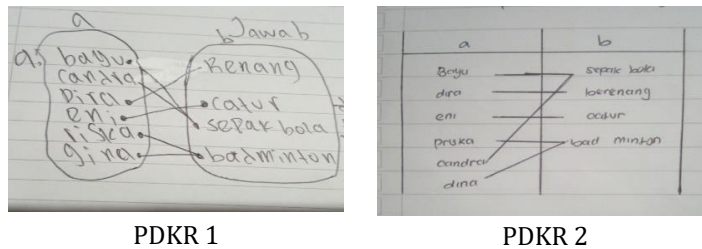 a
b Jawab
a. bayu
candra
Dira
eni
riska
gina
Renang
catur
sepak bola
badminton
PDKR 1
a b
Bayu sepak bola
dira berenang
eni catur
priska bad minton
candra
dina
PDKR 2